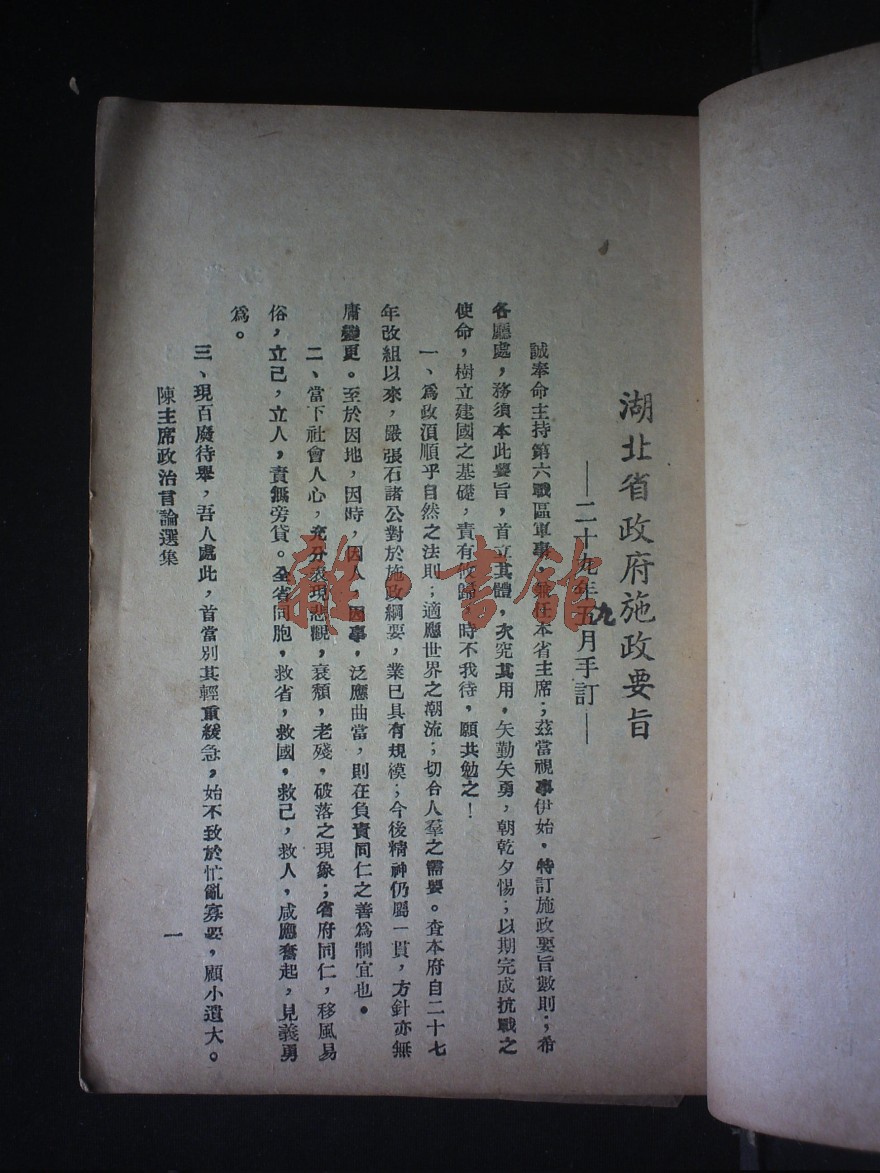 湖北省政府施政要旨
——二十九年五九月手訂——
誠奉命主持第六戰區軍事,兼任本省主席;茲當視事伊始,特訂施政要旨數則;希
各廳處,務須本此要旨,首立其體,次究其用,矢勤矢勇,朝乾夕惕;以期完成抗戰之
使命,樹立建國之基礎,責有攸歸,時不我待,願共勉之!
一、爲政須順乎自然之法則;適應世界之潮流;切合人羣之需要。查本府自二十七
年改組以來,嚴張石諸公對於施政綱要,業已具有規模;今後精神仍屬一貫,方針亦無
庸變更。至於因地,因時,因人,因事,泛應曲當,則在負責同仁之善爲制宜也。
二、當下社會人心,充分表現悲觀,衰頹,老殘,破落之現象;省府同仁,移風易
俗,立己,立人,責無旁貸。全省同胞,救省,救國,救己,救人,咸應奮起,見義勇
爲。
三、現百廢待舉,吾人處此,首當別其輕重緩急,始不致於忙亂寡要,顧小遺大。
陳主席政治言論選集
一
雜·書館